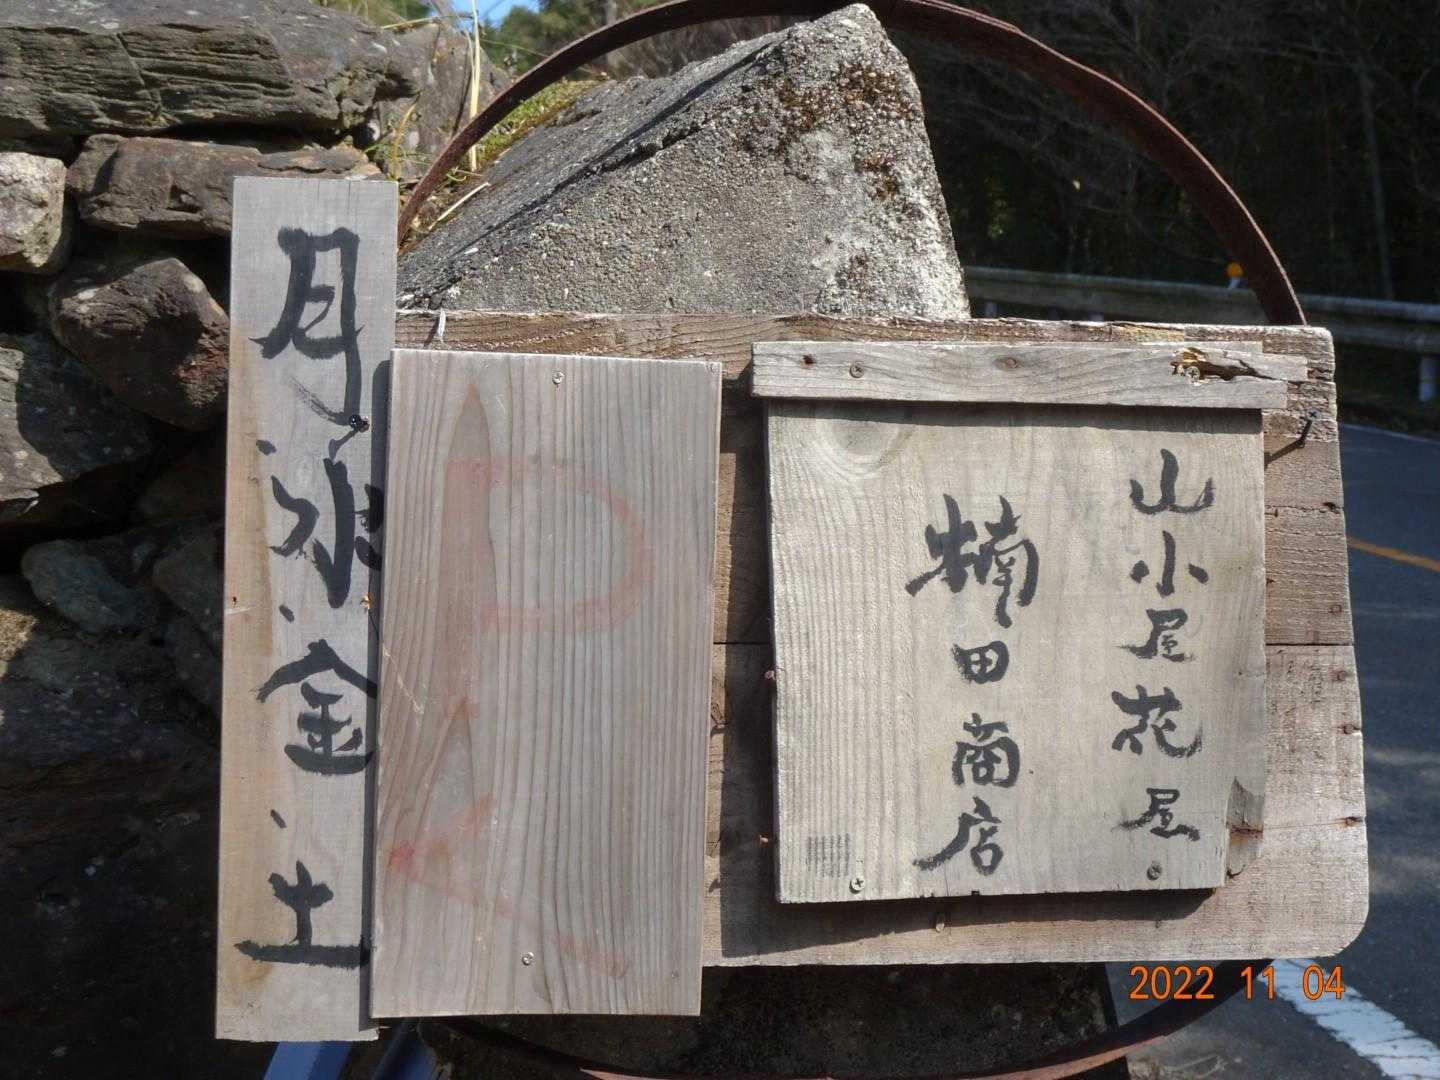 山小屋花屋
楠田商店
月、水、金、土
2022 11 04